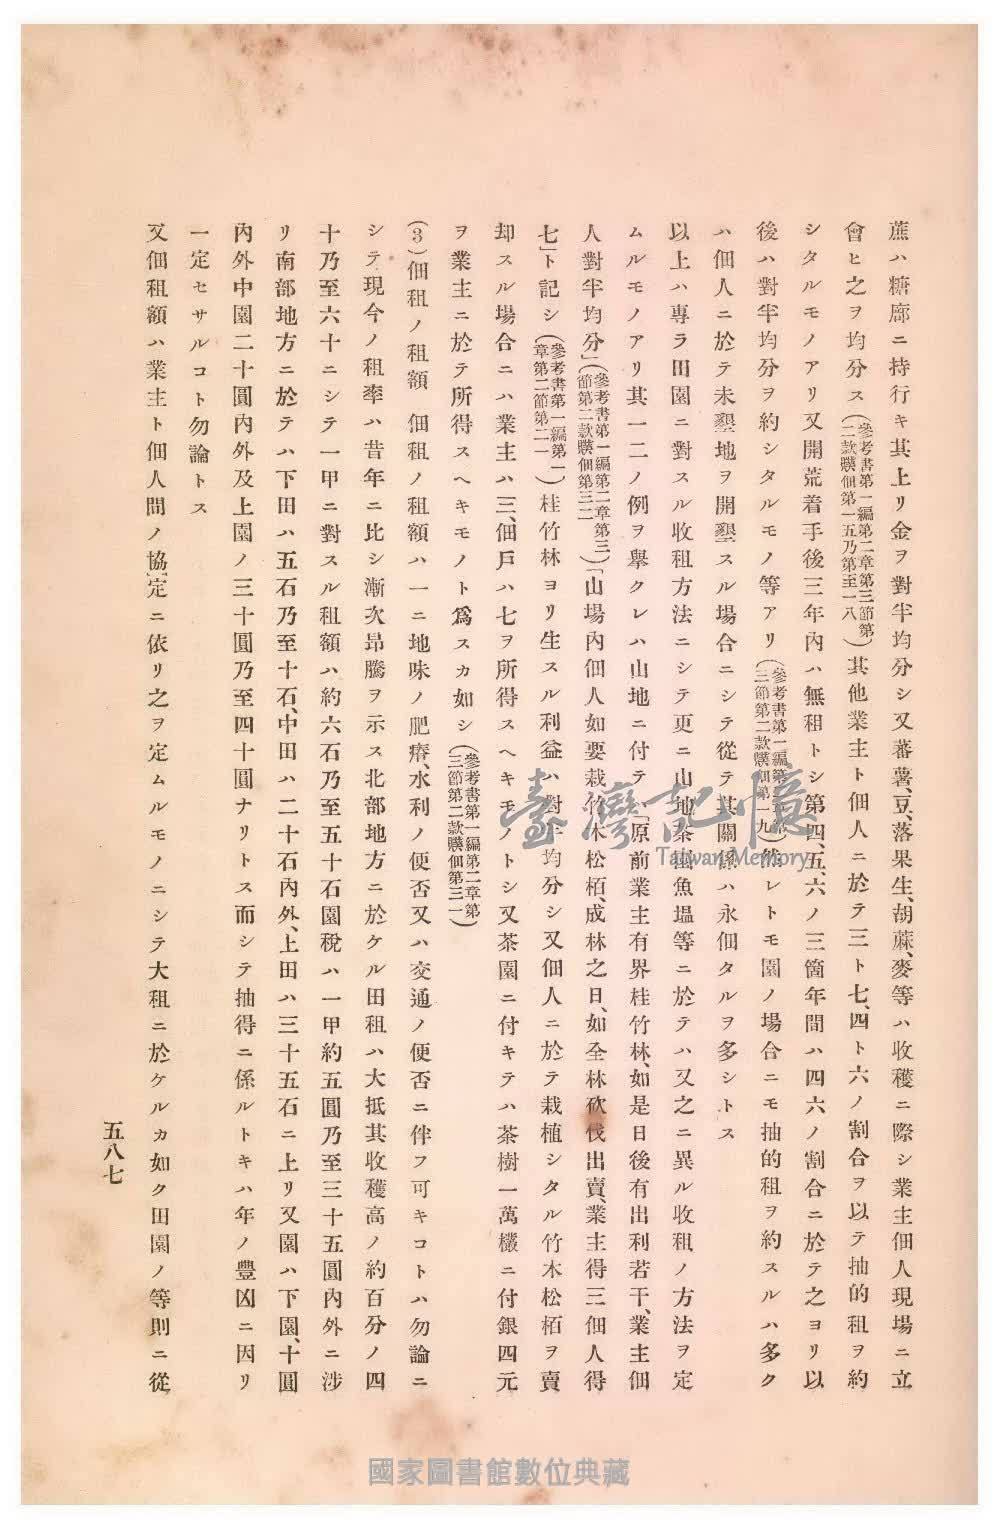 蔗ハ糖廍ニ持行キ其上リ金ヲ對半均分シ又蕃薯、豆、落果生、胡蔴、麥等ハ收穫ニ際シ業主佃人現場ニ立
會ヒ之ヲ均分ス(參考書第一編第二章第三節第二款贌佃第一五乃第至一八)其他業主ト佃人ニ於テ三ト七、四ト六ノ割合ヲ以テ抽的租ヲ約
シタルモノアリ又開荒着手後三年內ハ無租トシ第四、五、六ノ三箇年間ハ四六ノ割合ニ於テ之ヨリ以
後ハ對半均分ヲ約シタルモノ等アリ(參考書第一編第二章第三節第二款贌佃第一九)然レトモ園ノ場合ニモ抽的租ヲ約スルハ多ク
ハ佃人ニ於テ未墾地ヲ開墾スル場合ニシテ從テ其關係ハ永佃タルヲ多シトス
以上ハ專ラ田園ニ對スル收租方法ニシテ更ニ山地茶園魚塭等ニ於テハ又之ニ異ル收租ノ方法ヲ定
ムルモノアリ其一二ノ例ヲ擧クレハ山地ニ付テ「原前業主有界桂竹林、如是日後有出利若干、業主佃
人對半均分」(參考書第一編第二章第三節第二款贌佃第三二)「山場內佃人如要栽竹木松栢、成林之日、如全林砍伐出賣、業主得三佃人得
七」ト記シ(參考書第一編第一章第二節第二一)桂竹林ヨリ生スル利益ハ對半均分シ又佃人ニ於テ栽植シタル竹木松栢ヲ賣
却スル場合ニハ業主ハ三、佃戶ハ七ヲ所得スヘキモノトシ又茶園ニ付キテハ茶樹一萬欉ニ付銀四元
ヲ業主ニ於テ所得スヘキモノト爲スカ如シ(參考書第一編第二章第三節第二款贌佃第三一)
(3)佃租ノ租額 佃租ノ租額ハ一ニ地味ノ肥瘠、水利ノ便否又ハ交通ノ便否ニ伴フ可キコトハ勿論ニ
シテ現今ノ租率ハ昔年ニ比シ漸次昂騰ヲ示ス北部地方ニ於ケル田租ハ大抵其收穫高ノ約百分ノ四
十乃至六十ニシテ一甲ニ對スル租額ハ約六石乃至五十石園稅ハ一甲約五圓乃至三十五圓內外ニ涉
リ南部地方ニ於テハ下田ハ五石乃至十石、中田ハ二十石內外、上田ハ三十五石ニ上リ又園ハ下園、十圓
內外中園二十圓內外及上園ノ三十圓乃至四十圓ナリトス而シテ抽得ニ係ルトキハ年ノ豐凶ニ因リ
一定セサルコト勿論トス
又佃租額ハ業主ト佃人間ノ協定ニ依リ之ヲ定ムルモノニシテ大租ニ於ケルカ如ク田園ノ等則ニ從
五八七
臺灣記憶
Taiwan Memory
國家圖書館數位典藏